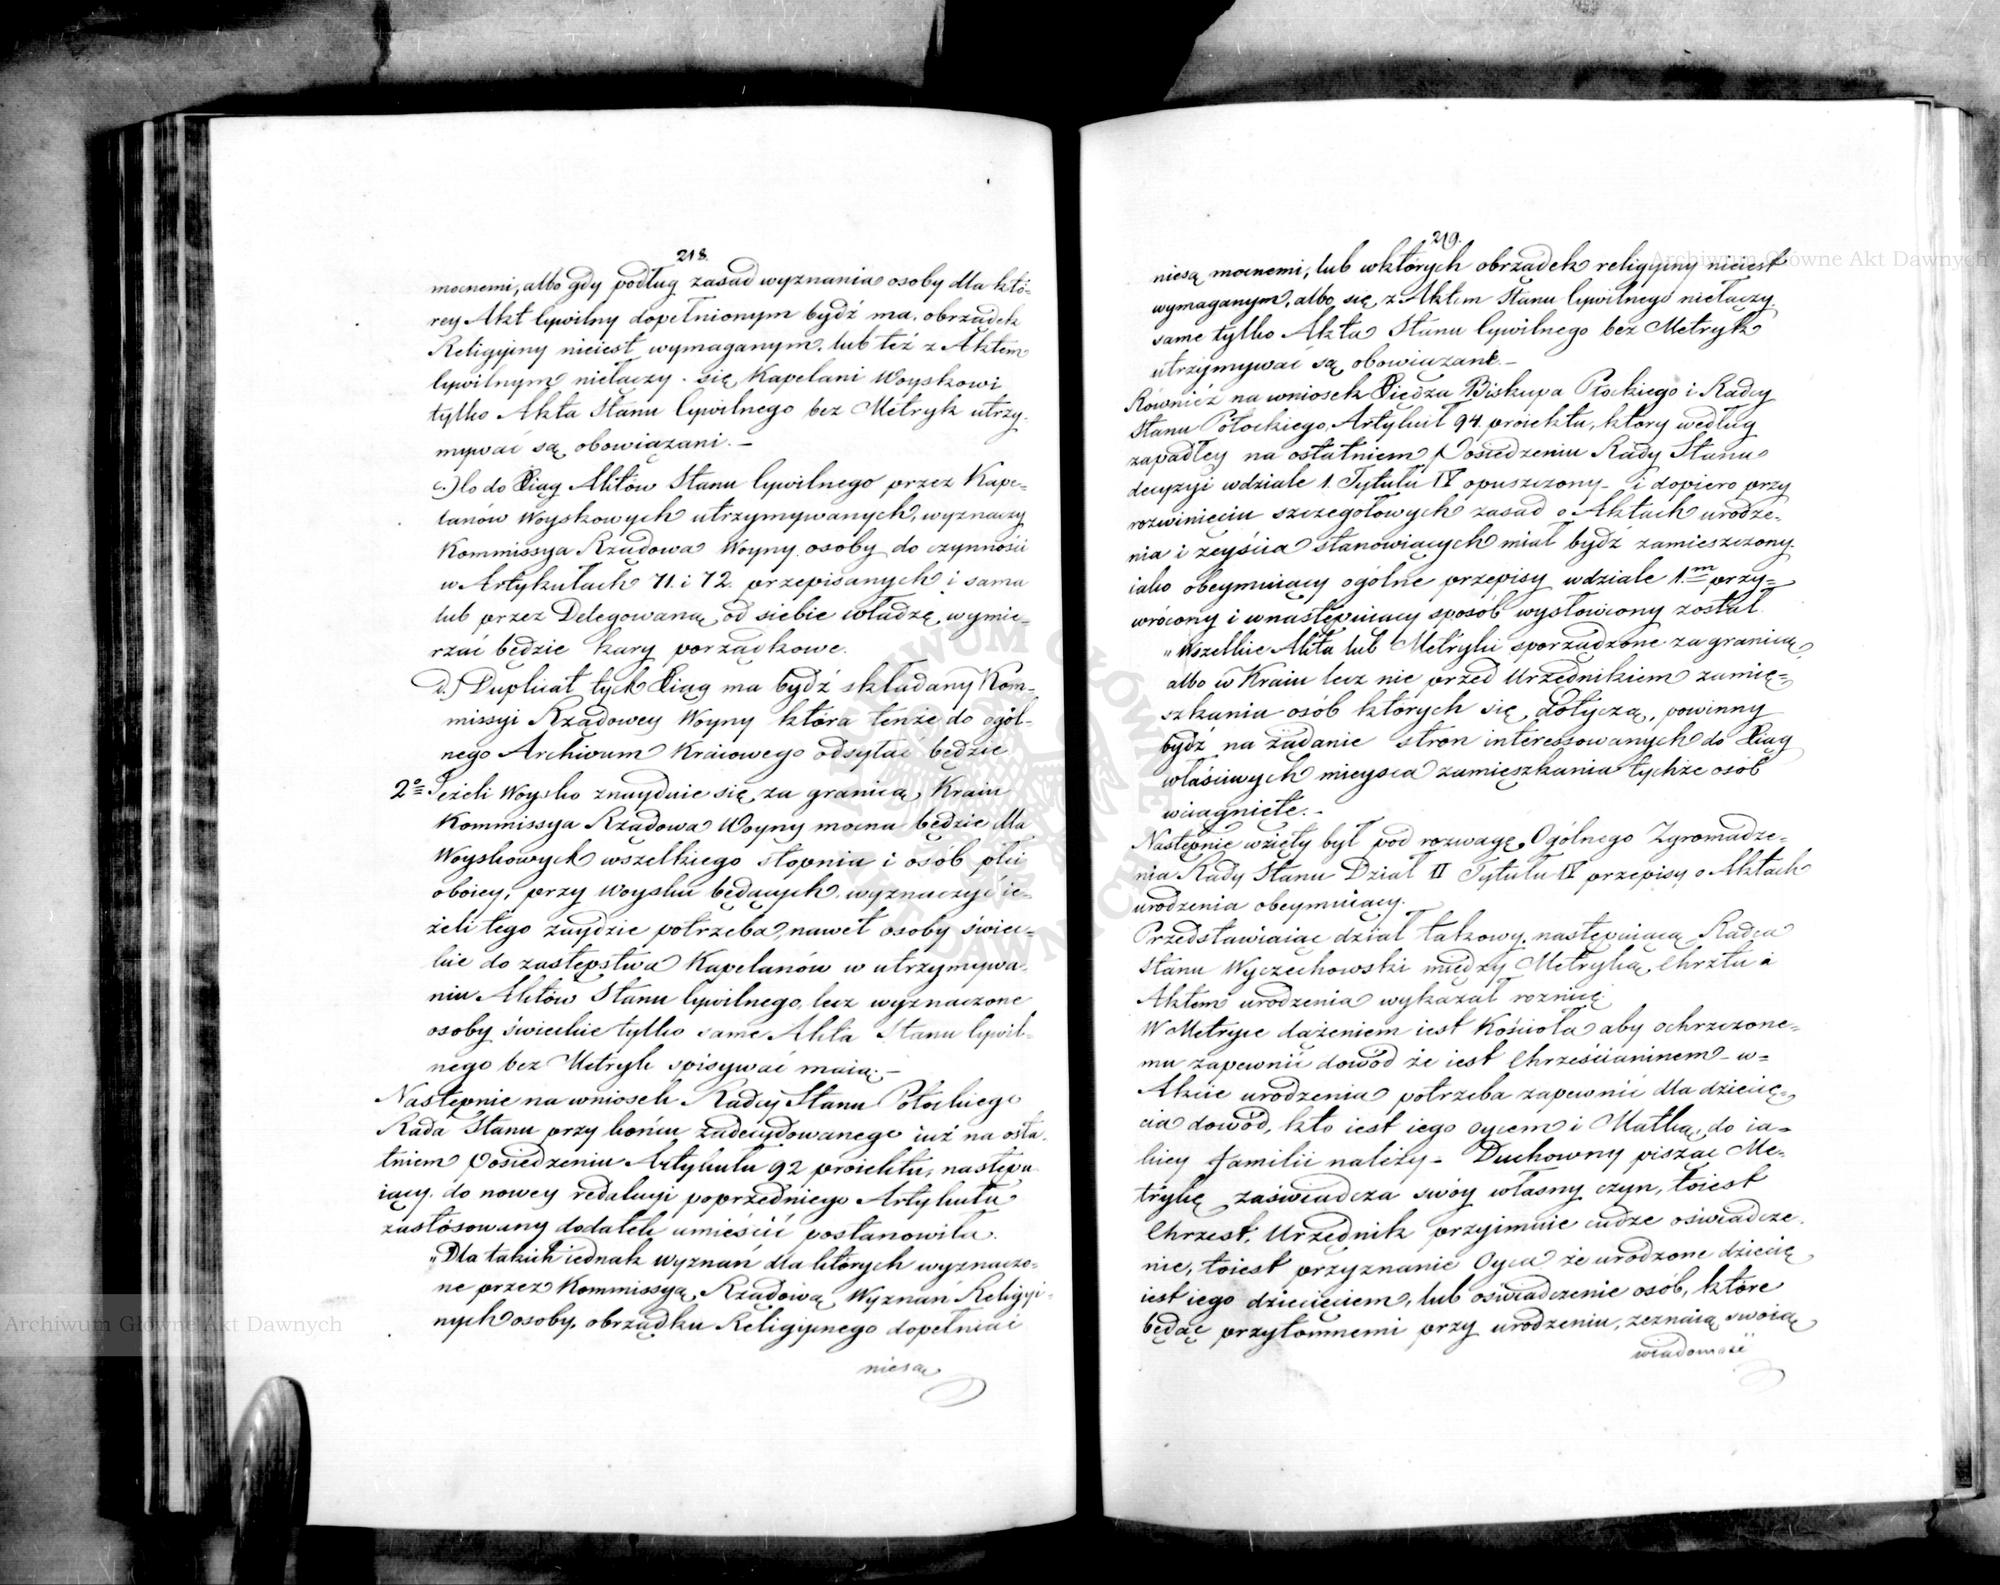 218.
mocnemi, albo gdy podług zasad wyznania osoby dla któ-
rey Akt Cywilny dopełnionym bydź ma, obrządek
Religyiny nieiest wymaganym, lub też z Aktem
Cywilnym niełączy się, Kapelani Woyskowi
tylko Akta Stanu Cywilnego bez Metryk utrzy-
mywać są obowiązani. —
c.) Co do Xiąg Aktów Stanu Cywilnego przez Kape-
lanów Woyskowych utrzymywanych, wyznaczy
Kommissya Rządowa Woyny osoby do czynności
w Artykułach 71. i 72. przepisanych i sama
lub przez Delegowaną od siebie władzę, wymie-
rzać będzie kary porządkowe.
d.) Duplicat tych Xiąg ma bydź składany Kom-
missyi Rządowey Woyny która tenże do ogól-
nego Archiwum Kraiowego odsyłać będzie
2° Jeżeli Woysko znayduie się za granicą Kraiu
Kommissya Rządowa Woyny mocna będzie dla
Woyskowych wszelkiego stopnia i osób płci
oboiey, przy Woysku będących, wyznaczyć ie-
żeli tego zaydzie potrzeba, nawet osoby świec-
kie do zastępstwa Kapelanów w utrzymywa-
niu Aktów Stanu Cywilnego, lecz wyznaczone
osoby świeckie tylko same Akta Stanu Cywil-
nego bez Metryk spisywać maią. —
Następnie na wniosek Radcy Stanu Potockiego
Rada Stanu przy końcu zadecydowanego iuż na osta-
tniem Posiedzeniu Artykułu 92 proiektu, następu-
iący do nowey redakcyi poprzedniego Artykułu
zastósowany dodatek umieścić postanowiła.
„Dla takich iednak wyznań dla których wyznaczo-
ne przez Kommissyą Rządową Wyznań Religyi-
nych osoby, obrządku Religyinego dopełniać
niesą
219.
niesą mocnemi, lub w których obrządek religyiny nieiest
wymaganym, albo się z Aktem Stanu Cywilnego niełączy
same tylko Akta Stanu Cywilnego bez Metryk
utrzymywać są obowiązane. —
Również na wniosek Xiędza Biskupa Płockiego i Radcy
Stanu Potockiego, Artykuł 94. proiektu, który według
zapadłey na ostatniem Posiedzeniu Rady Stanu
decyzyi w dziale 1. Tytułu IV opuszczony – i dopiero przy
rozwinięciu szczegółowych zasad o Aktach urodze-
nia i zeyścia stanowiących miał bydź zamieszczony
iako obeymuiący ogólne przepisy w dziale 1.m przy-
wrócony i w następuiący sposób wysłowiony został
„Wszelkie Akta lub Metryki sporządzone za granicą
albo w Kraiu lecz nie przed Urzędnikiem zamie-
szkania osób których się dotyczą, powinny
bydź na żądanie stron interessowanych do Xiąg
właściwych mieysca zamieszkania tychże osób
wciągnięte. –
Następnie wzięty był pod rozwagę Ogólnego Zgromadze-
nia Rady Stanu Dział II Tytułu IV przepisy o Aktach
urodzenia obeymuiący.
Przedstawiaiąc dział takowy, następuiącą Radca
Stanu Wyczechowski między Metryką Chrztu a
Aktem urodzenia wykazał róznicę
W Metryce dążeniem iest Kościoła aby ochrzczone-
mu zapewnić dowód że iest Chrześcianinem – w-
Akcie urodzenia potrzeba zapewnić dla dziecię-
cia dowód, kto iest iego oycem i Matką, do ia-
kiey familii należy – Duchowny pisząc Me-
trykę zaświadcza swóy własny czyn, toiest
Chrzest, Urzędnik przyimuie cudze oświadcze-
nie, toiest przyznanie Oyca że urodzone dziecię
iest iego dziecięciem, lub oświadczenie osób, które
będąc przytomnemi przy urodzeniu, zeznaią swoią
wiadomość
Archiwum Główne Akt Dawnych
Archiwum Główne Akt Dawnych
ARCHIWUM GŁÓWNE AKT DAWNYCH